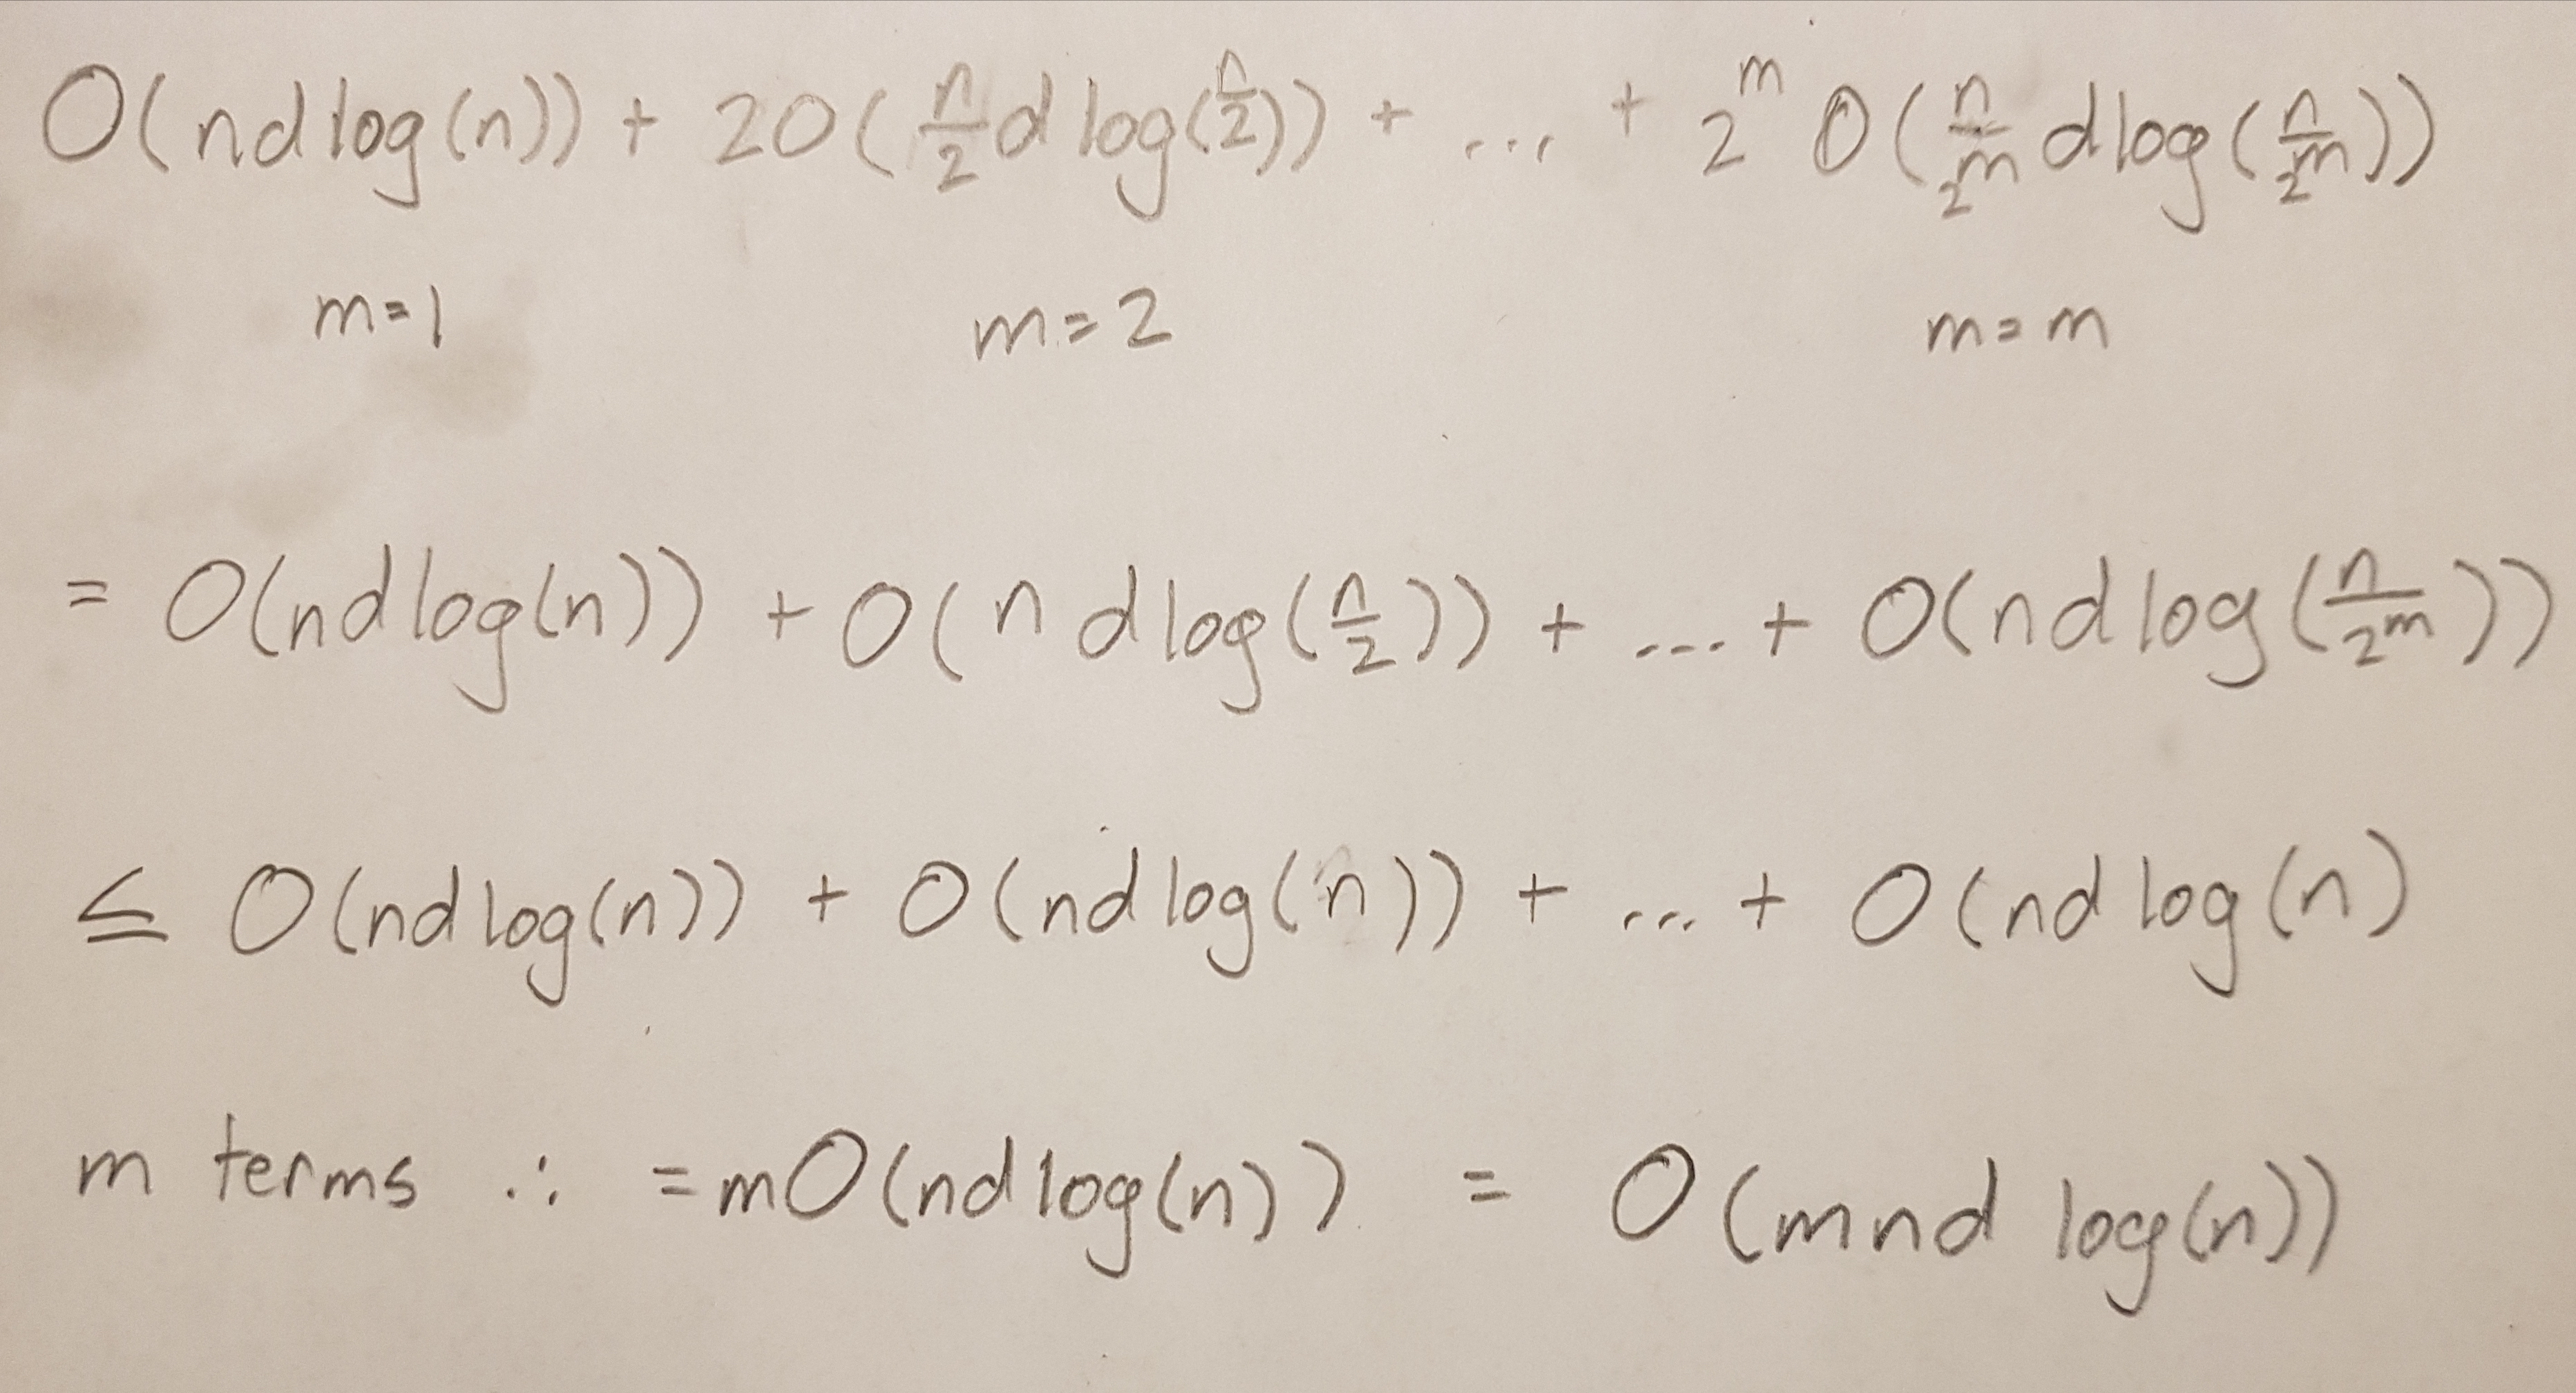 O(nd log(n)) + 2O(n/2 d log(n/2)) + ... + 2^m O(n/2^m d log(n/2^m))
m=1 m=2 m=m
= O(nd log(n)) + O(n d log(n/2)) + ... + O(nd log(n/2^m))
≤ O(nd log(n)) + O(nd log(n)) + ... + O(nd log(n)
m terms ∴ = mO(nd log(n)) = O(mnd log(n))